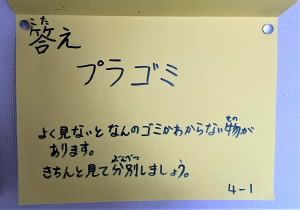 こた
答え
プラゴミ
よく見ないとなんのゴミかわからない物が
もの
あります。
きちんと見て分別しましょう。
ぶんべつ
4-1